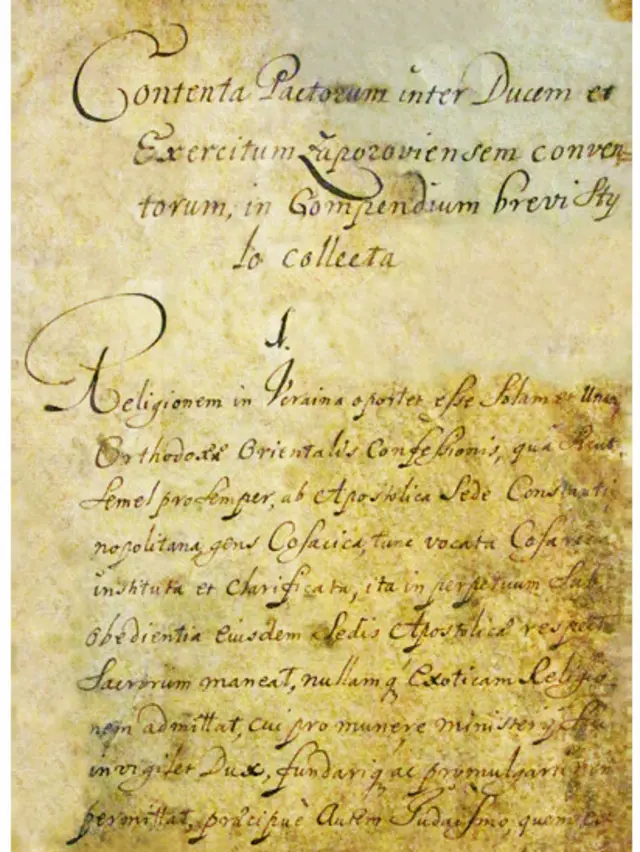 Contenta Pactorum inter Ducem et
Exercitum Zaporoviensem conven=
torum, in Compendium brevi Sty
lo collecta
1.
Religionem in Ucraina oportet esse Solam et Unam
Orthodoxæ Orientalis Confessionis, quâ
semel pro semper, ab Apostolica Sede Constanti
nopolitana, gens Cosacica, tunc vocata
instituta et clarificata, ita in perpetuum Sub
obedientia eiusdem Sedis Apostolicæ respectu
Sacrorum maneat, nullamq' Exoticam Religio
nem admittat, cui pro munere ministerij Sui
invigilet Dux, fundariq' ac promulgari non
permittat, præcipuè Autem Judaismo,